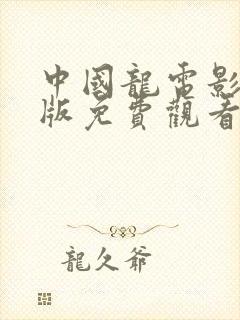 中國龍電影
版免費觀看
龍久爺